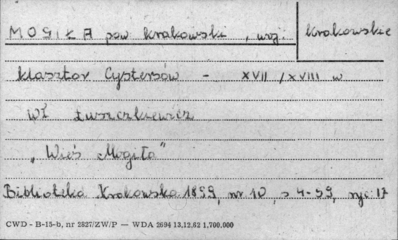 MOGIŁA pow krakowski, woj. krakowskie
klasztor Cystersów - XVII/XVIII w
Wł Łuszczkiewicz
„Wieś Mogiła"
Biblioteka Krakowska 1899, nr 10, s 4-99, ryc. 17
CWD - B-15-b, nr 2827/ZW/P — WDA 2694 13.12.62 1.700.000